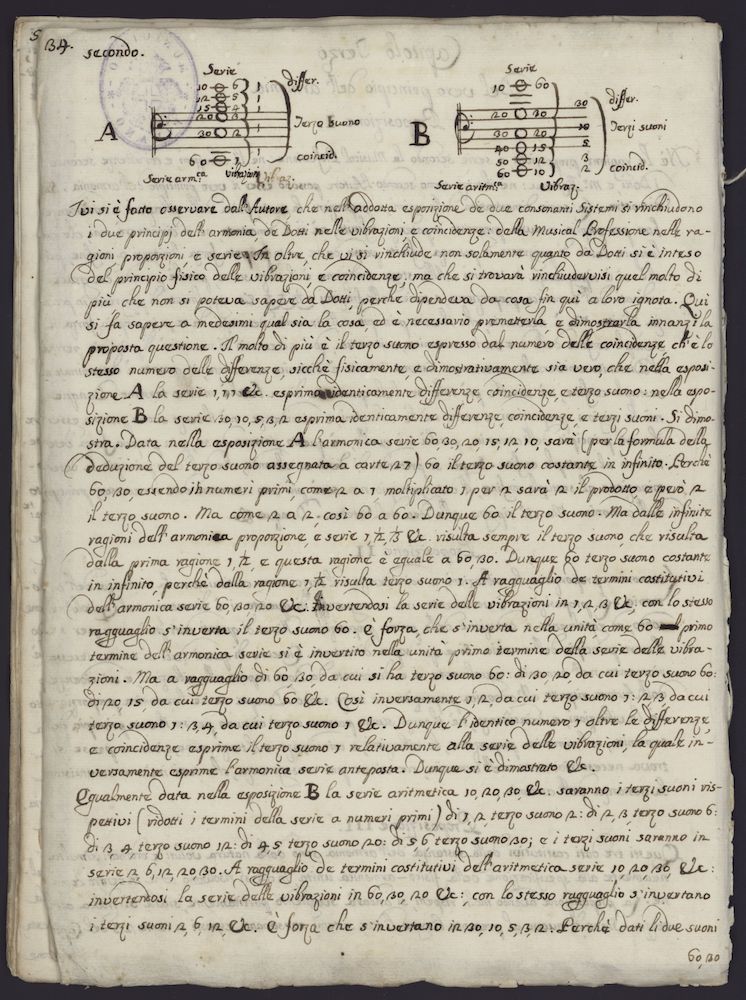 34.
secondo.
Serie
Serie
10 6 1 differ.
12 5 1
15 4 1
20 3 1 Terzo suono
30 2 1
60 1 coincid.
A
Serie arm.ca Vibraz.
10 60
20 30 30 differ.
30 20 10 Terzi suoni
40 15 5
50 12 3
60 10 2 coincid.
B
Serie aritm.ca Vibraz.
Ivi si è fatto osservare dall'Autore, che nell'addotta esposizione de due consonanti Sistemi si rinchiudono
i due principj dell'armonia de Dotti nelle vibrazioni, e coincidenze: della Musical Professione nelle ra-
gioni, proporzioni, e serie. In oltre, che vi si rinchiude non solamente quanto da Dotti si è inteso
del principio fisico delle vibrazioni, e coincidenze, ma che si trovarà rinchiudervisi quel molto di
più, che non si poteva sapere da Dotti, perchè dipendeva da cosa fin quì a loro ignota. Qui
si fa sapere a medesimi qual sia la cosa, ed è necessario premetterla, e dimostrarla innanzi la
proposta questione. Il molto di più è il terzo suono espresso dal numero delle coincidenze, ch'è lo
stesso numero delle differenze, sicchè fisicamente, e dimostrativamente sia vero, che nella esposi-
zione A la serie 1,1,1 &c. esprima identicamente differenze, coincidenze, e terzo suono: nella espo-
sizione B la serie 30, 10, 5, 3, 2 esprima identicamente differenze, coincidenze, e terzi suoni. Si dimo-
stra. Data nella esposizione A l'armonica serie 60, 30, 20, 15, 12, 10, sarà (per la formula della
deduzione del terzo suono assegnata a carte 27) 60 il terzo suono costante in infinito. Perchè
60, 30, essendo in numeri primi come 2 a 1, moltiplicato 1 per 2 sarà 2 il prodotto, e però 2
il terzo suono. Ma come 2 a 2, così 60 a 60. Dunque 60 il terzo suono. Ma dalle infinite
ragioni dell'armonica proporzione, e serie 1, 1/2, 1/3 &c. risulta sempre il terzo suono, che risulta
dalla prima ragione 1, 1/2, e questa ragione è eguale a 60, 30. Dunque 60 terzo suono costante
in infinito, perchè dalla ragione 1, 1/2 risulta terzo suono 1. A ragguaglio de termini costitutivi
dell'armonica serie 60, 30, 20 &c. invertendosi la serie delle vibrazioni in 1, 2, 3 &c. con lo stesso
ragguaglio s'inverta il terzo suono 60. È forza, che s'inverta nella unità, come 60 primo
termine dell'armonica serie si è invertito nella unità primo termine della serie delle vibra-
zioni. Ma a ragguaglio di 60 30 da cui si ha terzo suono 60: di 30, 20, da cui terzo suono 60:
di 20, 15, da cui terzo suono 60 &c. Così inversamente 1, 2, da cui terzo suono 1: 2, 3 da cui
terzo suono 1: 3, 4, da cui terzo suono 1 &c. Dunque l'identico numero 1 oltre le differenze,
e coincidenze esprime il terzo suono 1 relativamente alla serie delle vibrazioni, la quale in-
versamente esprime l'armonica serie anteposta. Dunque si è dimostrato &c.
Egualmente data nella esposizione B la serie aritmetica 10, 20, 30 &c. saranno i terzi suoni ris-
pettivi (ridotti i termini della serie a numeri primi) di 1, 2, terzo suono 2: di 2, 3, terzo suono 6:
di 3, 4, terzo suono 12: di 4 5 terzo suono 20: di 5 6 terzo suono 30; e i terzi suoni saranno in
serie 2, 6, 12, 20, 30. A ragguaglio de termini costitutivi dell'aritmetica serie 10, 20, 30, &c:
invertendosi la serie delle vibrazioni in 60, 30, 20 &c:, con lo stesso ragguaglio s'invertano
i terzi suoni 2, 6, 12, &c. È forza che s'invertano in 30, 10, 5, 3, 2. Perchè dati li due suoni
60, 30